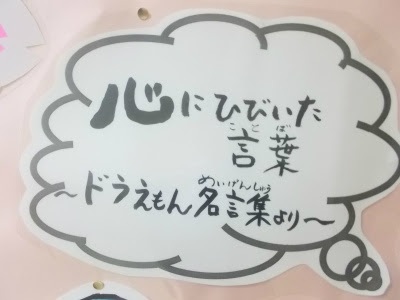 心にひびいた
ことば
言葉
めいげんしゅう
～ドラえもん名言集より～